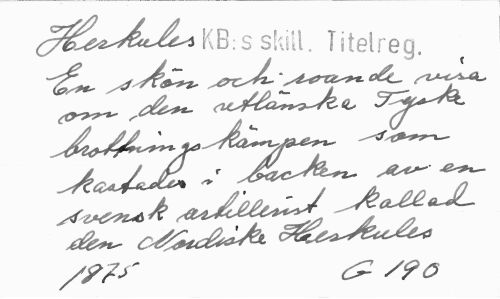 Herkules KB:s skill. Titelreg.
En skön och roande visa
om den utlänska Tyske
brottningskämpen som
kastades i backen av en
svensk artillerist kallad
den Nordiske Herkules
1875 G 190